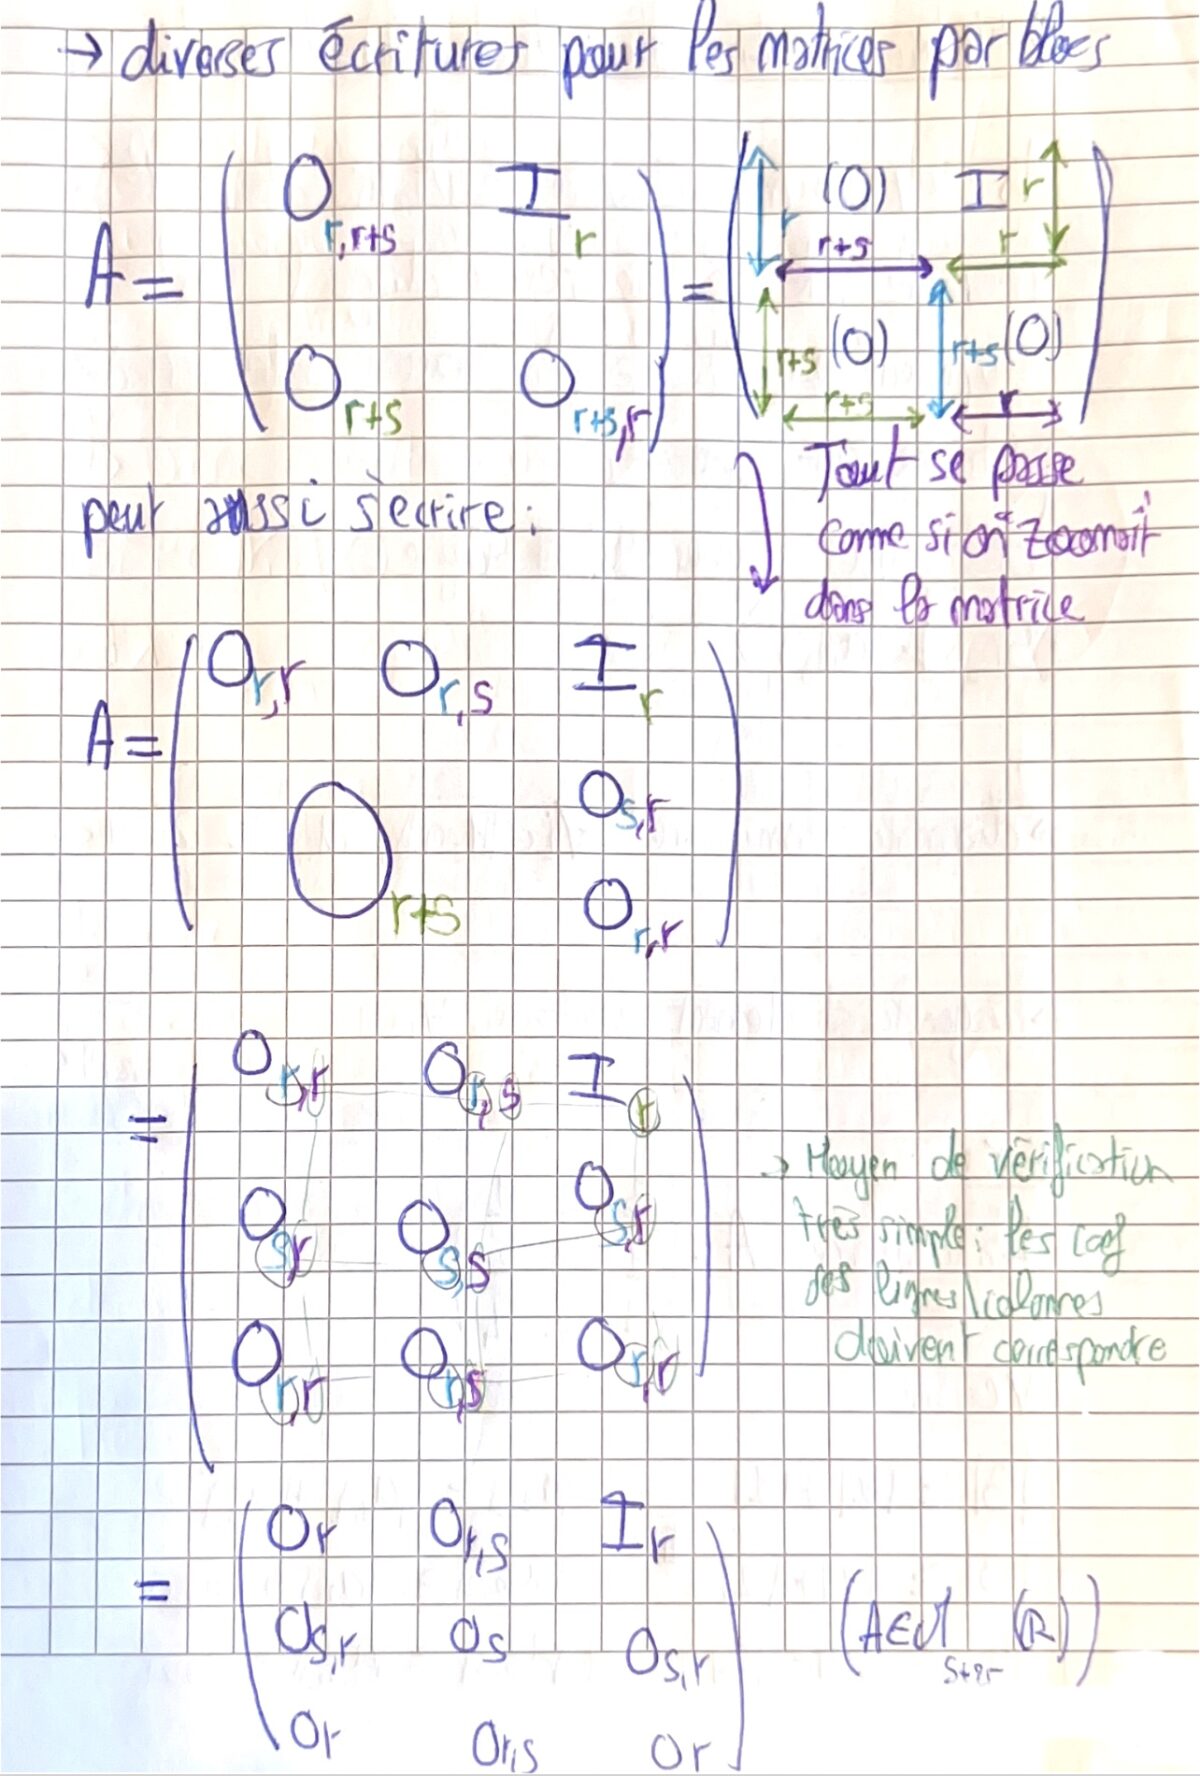 → diverses écritures pour les matrices par blocs
A = ( O_{r,r+s} I_r ; O_{r+s} O_{r+s,r} ) = ( r (O) r+s I r r ; r+s (O) r+s r+s (O) r )
Tout se passe
comme si on zoomait
dans la matrice
peut aussi s'écrire :
A = ( O_{r,r} O_{r,s} I_r
O_{s,r}
O_{r+s} O_{r,r} )
= ( O_{r,r} O_{r,s} I_r
O_{s,r} O_{s,s} O_{s,r}
O_{r,r} O_{r,s} O_{r,r} )
→ Moyen de vérification
très simple : les coef
des lignes/colonnes
doivent correspondre
= ( O_r O_{r,s} I_r
O_{s,r} O_s O_{s,r}
O_r O_{r,s} O_r )
(A ∈ M_{s+2r} (R))